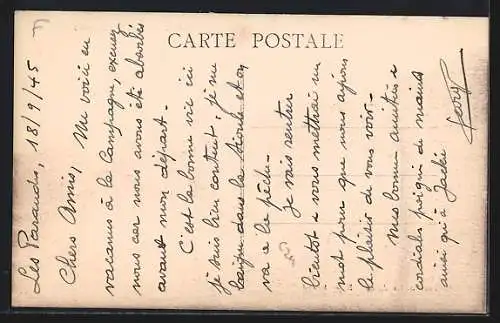 CARTE POSTALE
Les Parauds, 18/9/45
Chers Amis, Me voici en
vacances à la Campagne, excusez
nous car nous avons été absorbés
avant mon départ -
C'est la bonne vie ici
je suis bien content, je me
baigne dans la et on
va a la pêche -
je vais rentrer
bientot & vous mettrai un
mot pour que nous ayions
le plaisir de vous voir -
Mes bonnes amitiés &
cordiales poignées de mains
ainsi qu'à Jacki